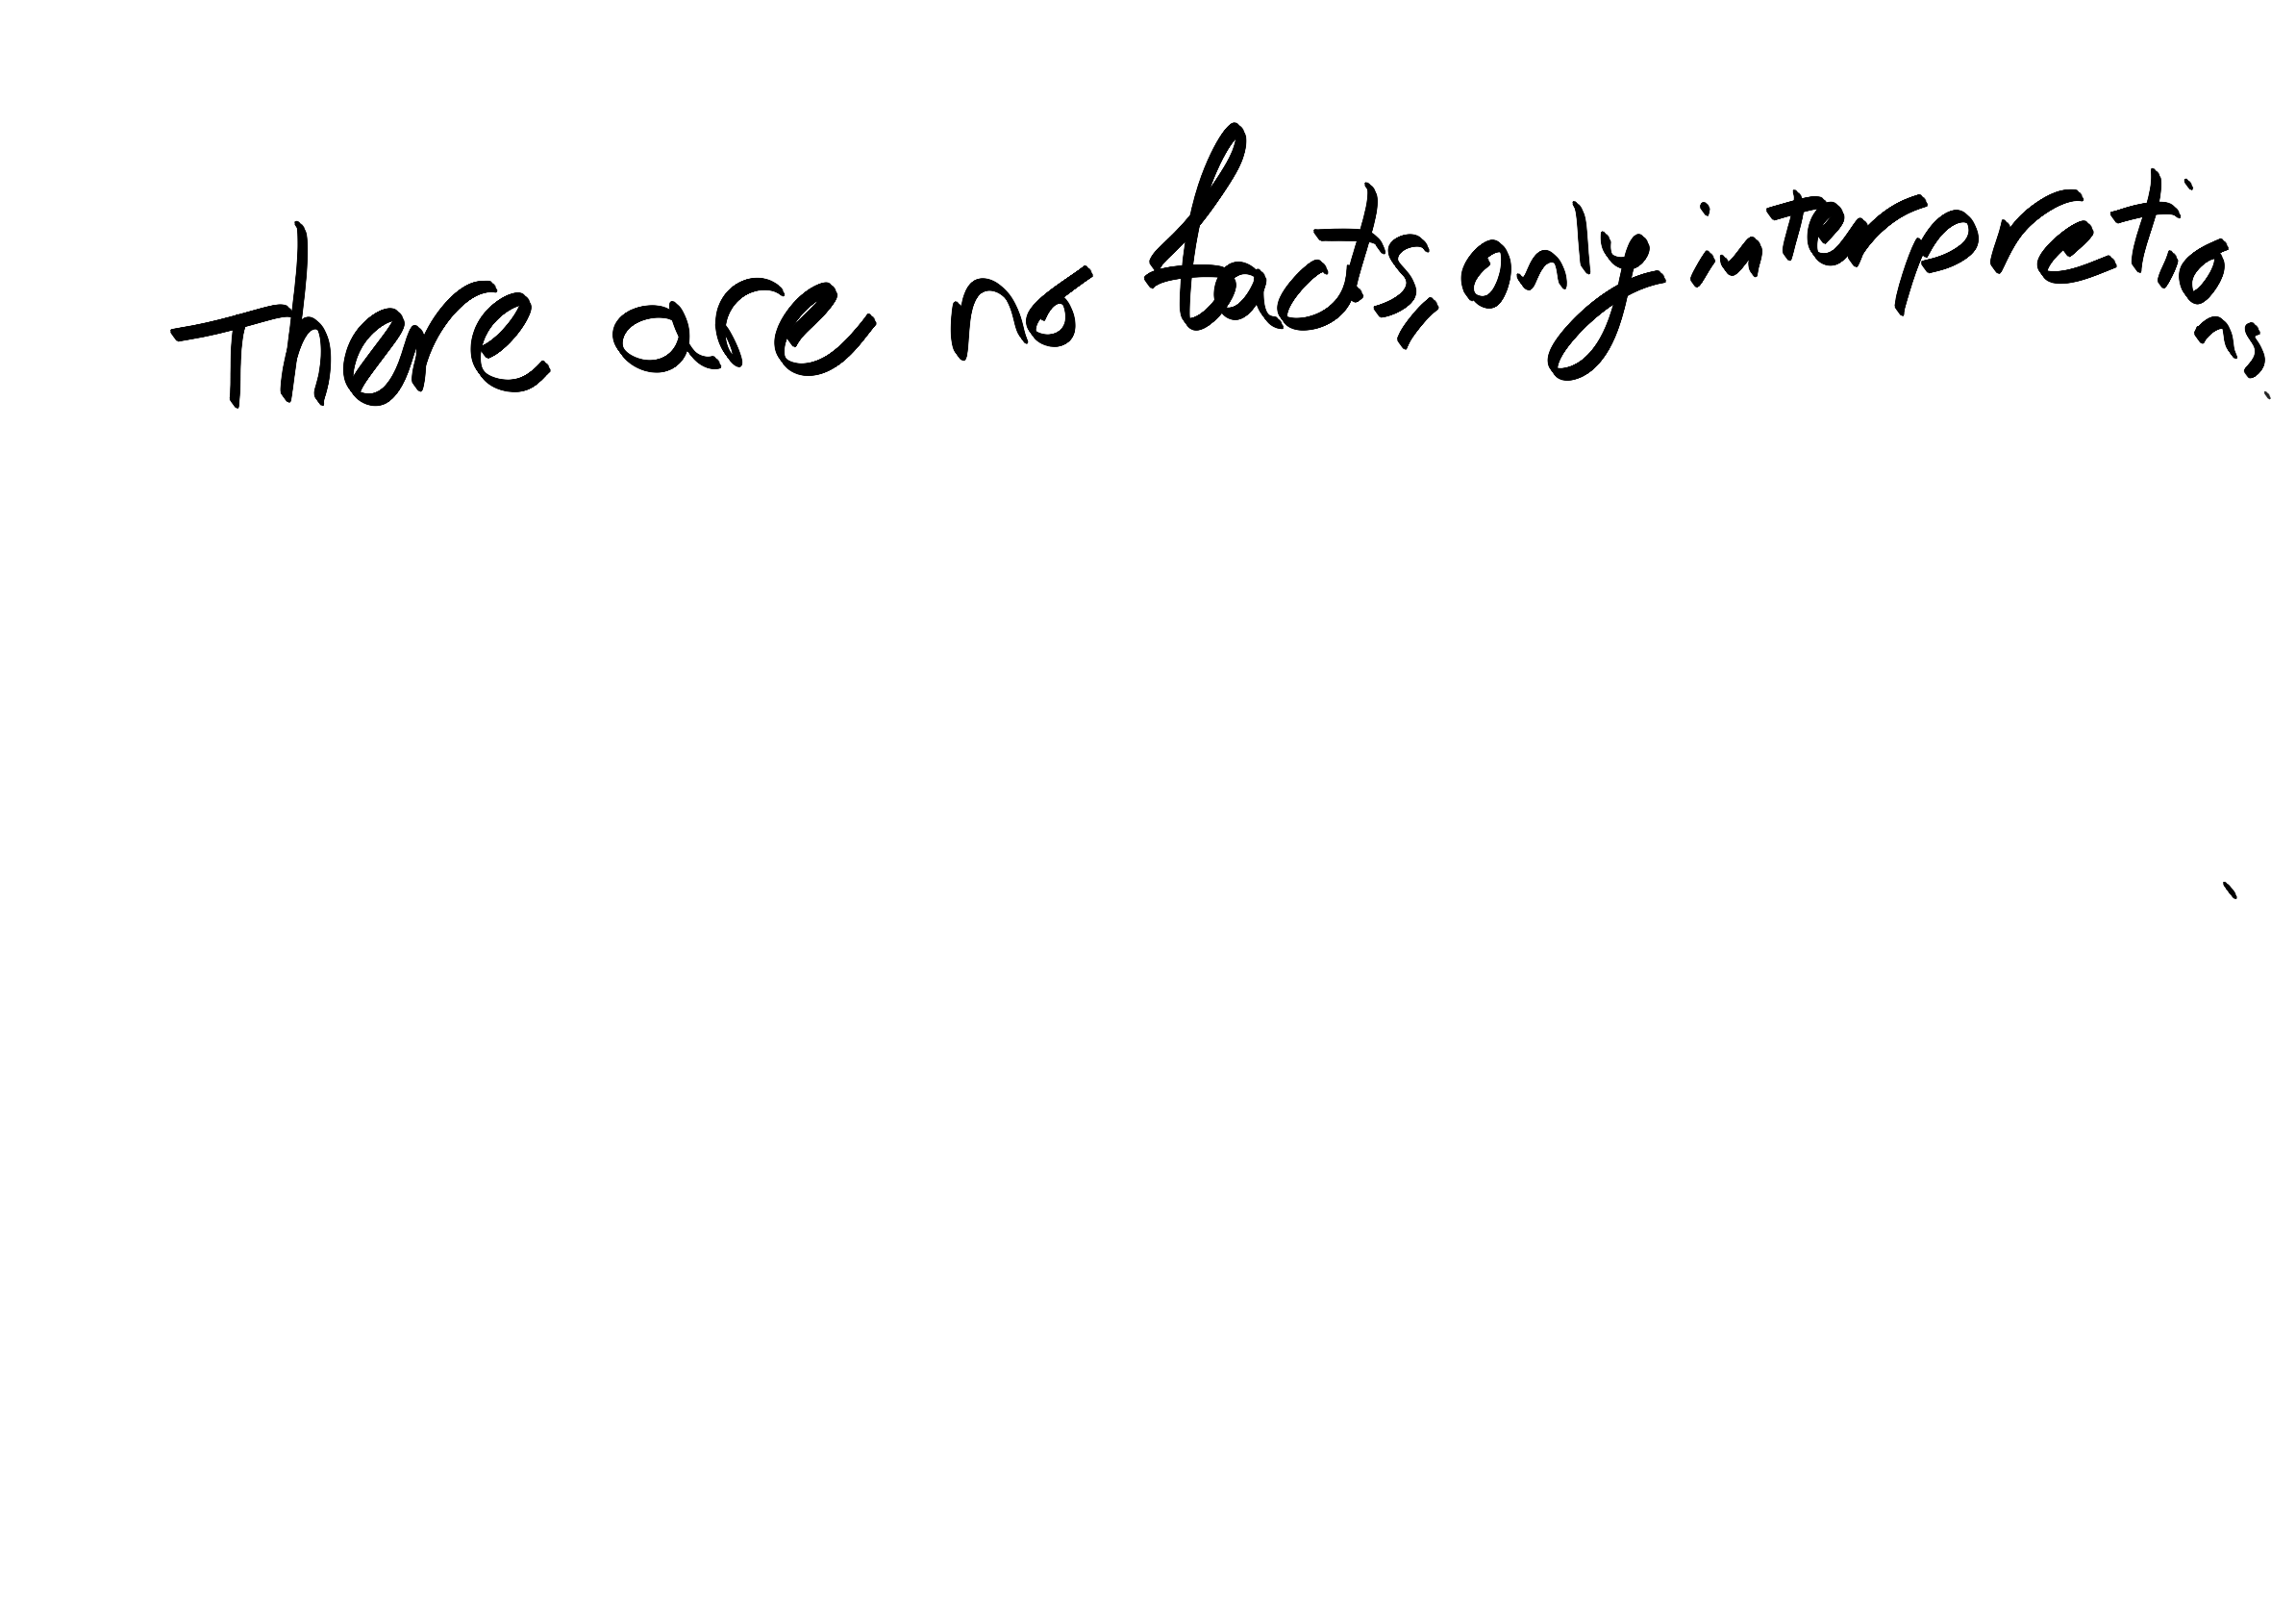 There are no facts, only interpretations.